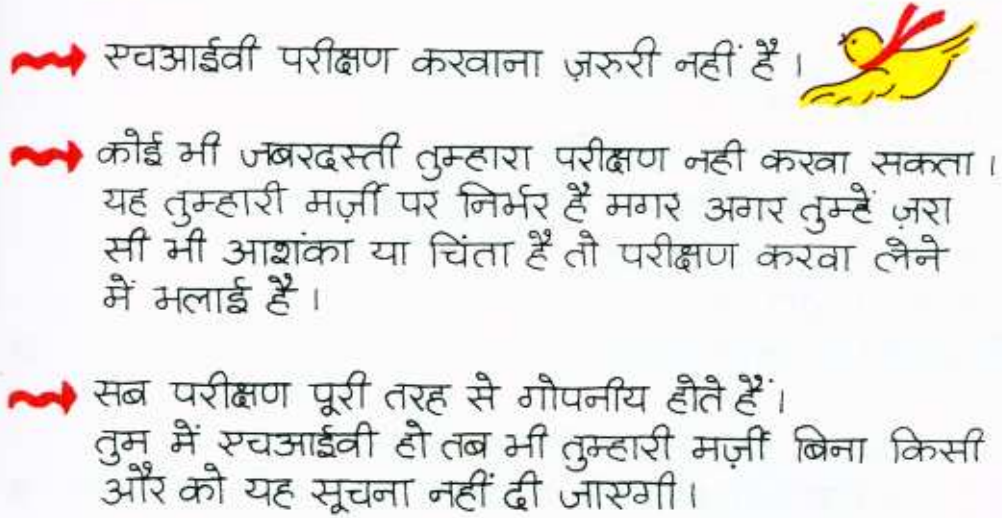 एचआईवी परीक्षण करवाना ज़रुरी नहीं है ।
कोई भी जबरदस्ती तुम्हारा परीक्षण नही करवा सकता ।
यह तुम्हारी मर्ज़ी पर निर्भर है मगर अगर तुम्हें ज़रा
सी भी आशंका या चिंता है तो परीक्षण करवा लेने
में भलाई है ।
सब परीक्षण पूरी तरह से गोपनीय होते हैं ।
तुम में एचआईवी हो तब भी तुम्हारी मर्ज़ी बिना किसी
और को यह सूचना नहीं दी जाएगी ।